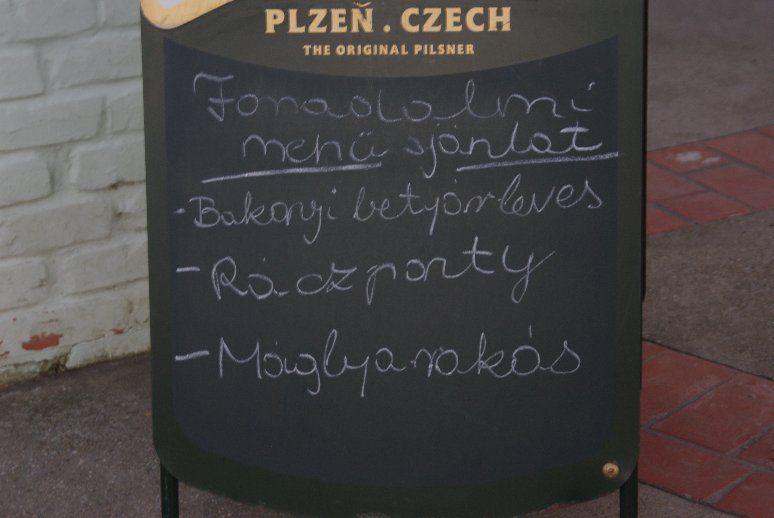 PLZEŇ . CZECH
THE ORIGINAL PILSNER
Fonadolmi
menü ajánlat
- Bakonyi betyárleves
- Ráczponty
- Máglyarakás